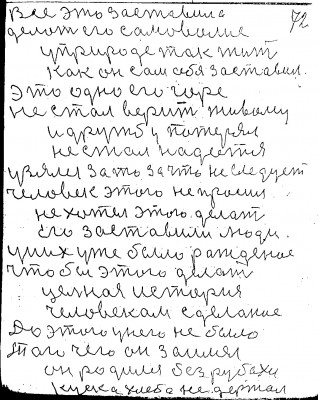 72
Все это заставила
делат его самоволие
у природе так жит
как он сам себя заставил.
Это одно его горе
не стал верит живому
и дружбу потерял
не стал надеятся
узялся за то за что не следует
человек этого не просил
не хотел этого делат
его заставили люди.
у них уже было рождение
чтобы этого делат
целная история
человекам сделание
До этого у него не было
того чего он занял
он родился без рубахи
куска хлеба не держал